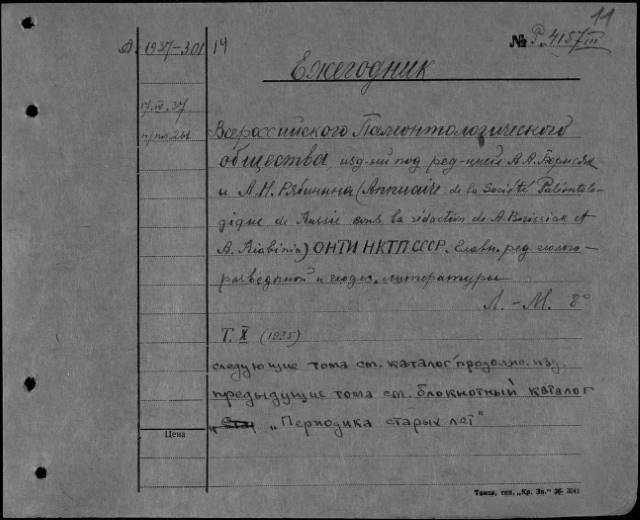 11
А. 1937-301 14 № Р. 4157 III
Ежегодник
17.IV.37
Всероссийского Палеонтологического
общества, изд-ный под ред-цией А.А. Борисяк
и А.Н. Рябинина (Annuaire de la Société Paléontolo-
gique de Russie sous la rédaction de A. Borissiak et
A. Riabinin) ОНТИ НКТП СССР. Главн. ред. геолого-
разведочной и геодез. литературы
Л.-М. 8°
Т. X (1935)
следующие тома см. каталог продолж. изд.
предыдущие тома см. блокнотный каталог
„Периодика старых лет"
Цена
Томск, тип. „Кр. Зн."